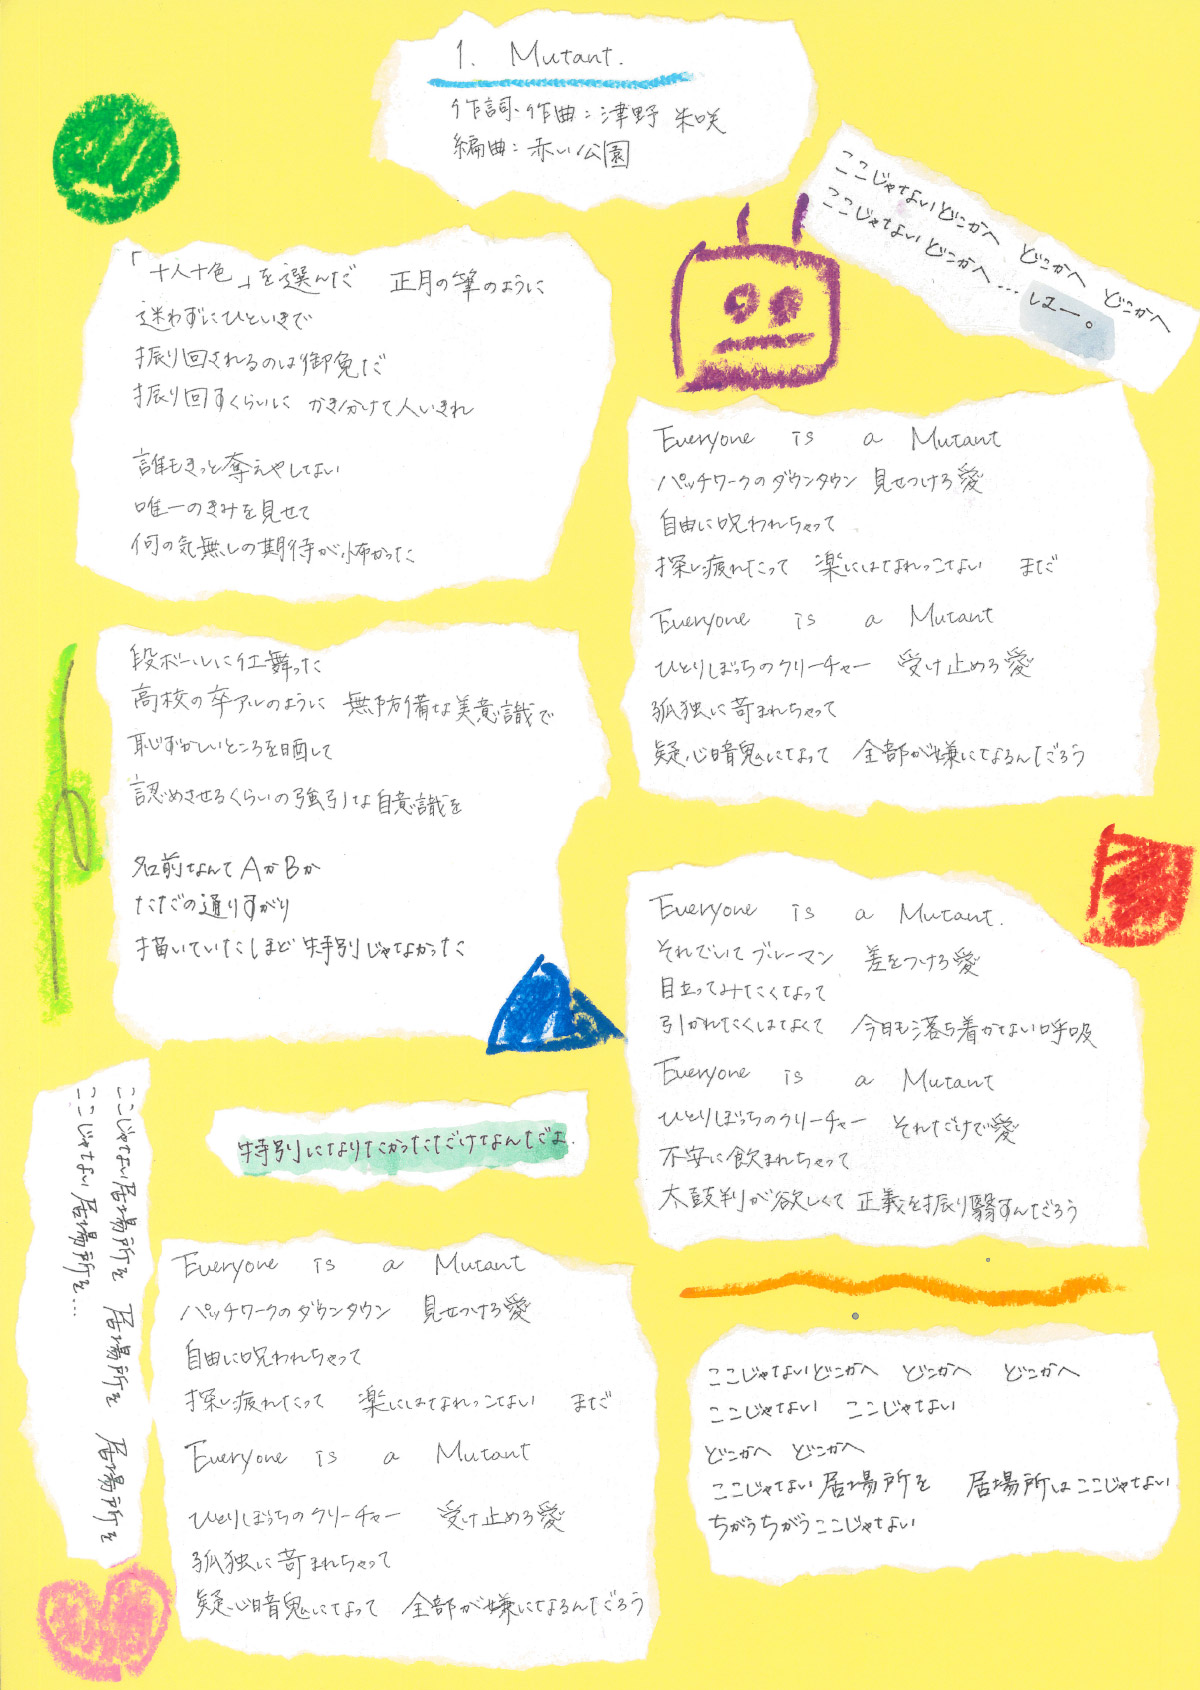 1. Mutant.
作詞・作曲：津野 朱咲
編曲：赤い公園
「十人十色」を選んだ 正月の筆のように
迷わずにひといきで
振り回されるのは御免だ
振り回すくらいに かき分けて人いきれ
誰もきっと奪えやしてない
唯一のきみを見せて
何の気無しの期待が怖かった
段ボールに仕舞った
高校の卒アルのように 無防備な美意識で
恥ずかしいところを晒して
認めさせるくらいの強引な自意識を
名前なんてAかBか
ただの通りすがり
描いていたほど特別じゃなかった
特別になりたかっただけなんだよ.
ここじゃない居場所を 居場所を 居場所を
ここじゃない居場所を...
Everyone is a Mutant
パッチワークのダウンタウン 見せつけろ愛
自由に呪われちゃって
探し疲れたって 楽にはなれっこない まだ
Everyone is a Mutant
ひとりぼっちのクリーチャー 受け止めろ愛
孤独に苛まれちゃって
疑心暗鬼になって 全部が嫌になるんだろう
ここじゃないどこかへ どこかへ どこかへ
ここじゃない どこかへ... はー。
Everyone is a Mutant
パッチワークのダウンタウン 見せつけろ愛
自由に呪われちゃって
探し疲れたって 楽にはなれっこない まだ
Everyone is a Mutant
ひとりぼっちのクリーチャー 受け止めろ愛
孤独に苛まれちゃって
疑心暗鬼になって 全部が嫌になるんだろう
Everyone is a Mutant.
それでいてブルーマン 差をつけろ愛
目立ってみたくなって
引かれたくはなくて 今日も落ち着かない呼吸
Everyone is a Mutant
ひとりぼっちのクリーチャー それだけで愛
不安に飲まれちゃって
太鼓判が欲しくて 正義を振り翳すんだろう
ここじゃないどこかへ どこかへ どこかへ
ここじゃない ここじゃない
どこかへ どこかへ
ここじゃない居場所を 居場所はここじゃない
ちがうちがうここじゃない